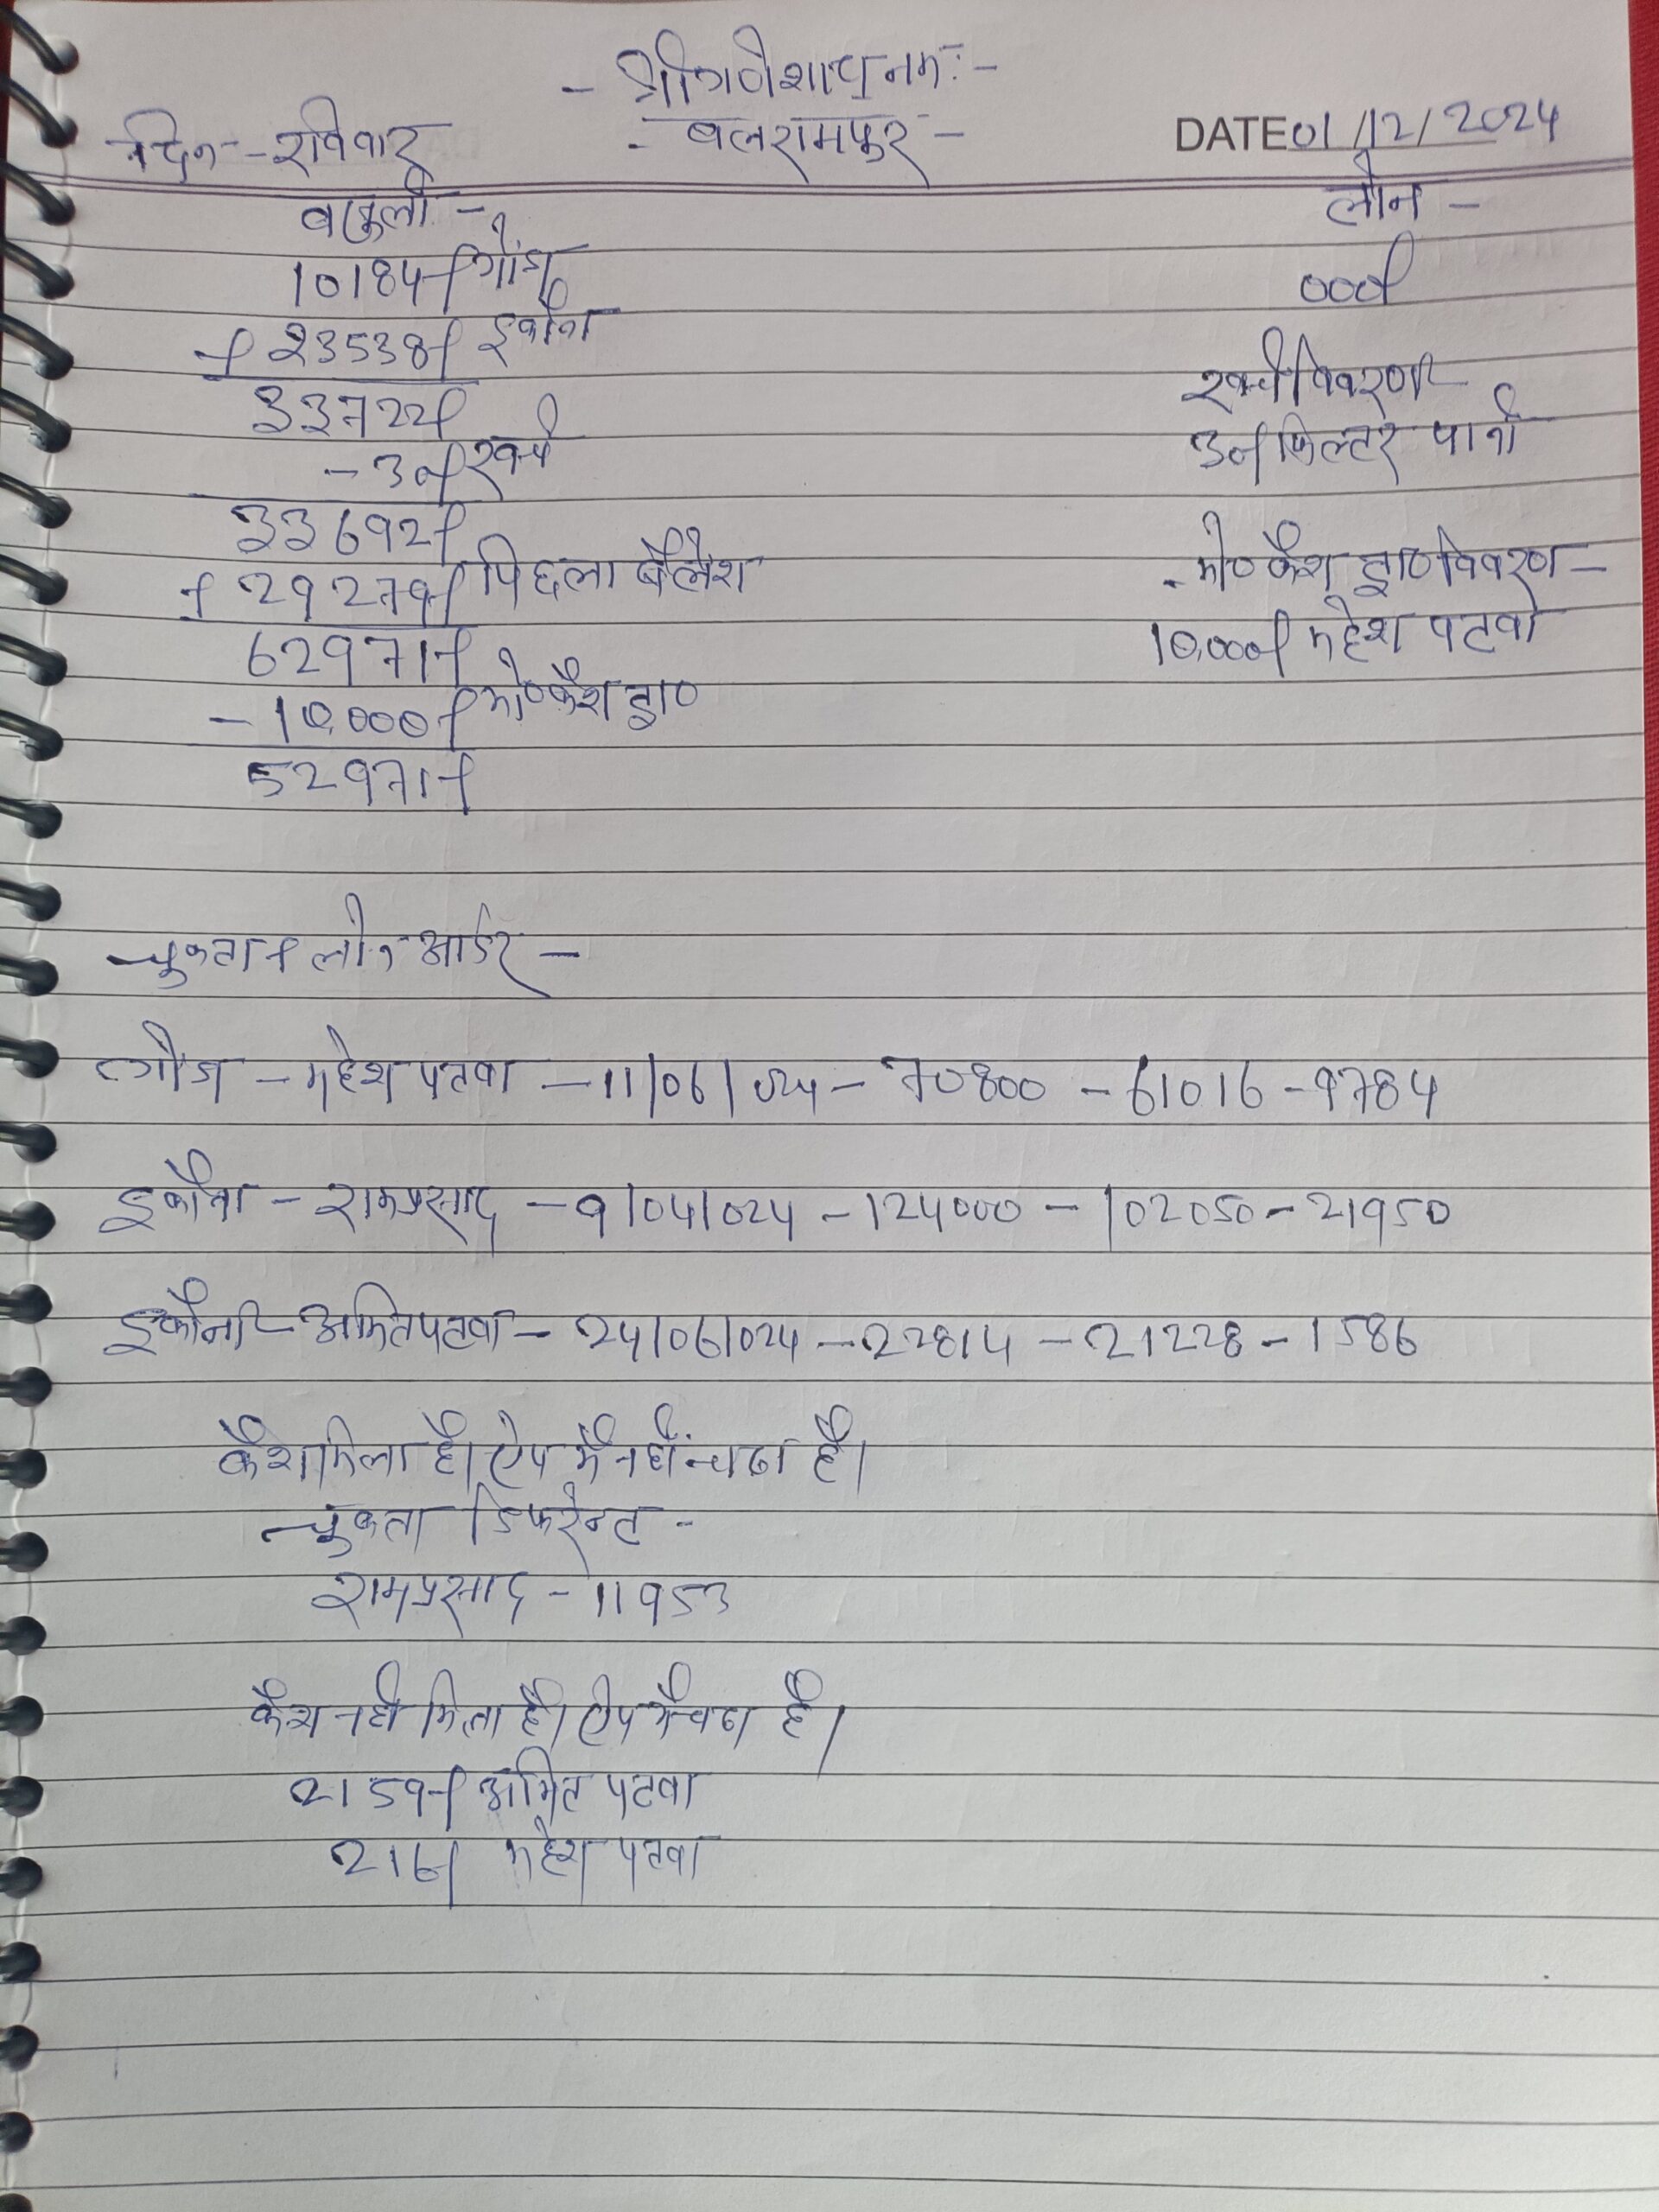 - श्री गणेशाय नमः -
दिन - रविवार - बलरामपुर - DATE 01/12/2024
वसूली - लोन -
10184/ गोंडा 000/
+ 23538/ इकौना
33722/ खर्च विवरण -
- 30/ खर्च 30/ फिल्टर पानी
33692/
+ 29279/ पिछला बैलेंश - मो० कैश ट्रा० विवरण -
62971/ 10,000/ महेश पटवा
- 10,000/ मो० कैश ट्रा०
52971/
चुकता + लोन आर्डर -
गोंडा - महेश पटवा - 11/06/024 - 70800 - 61016 - 9784
इकौना - रामप्रसाद - 9/04/024 - 124000 - 102050 - 21950
इकौना - अमित पटवा - 24/06/024 - 22814 - 21228 - 1586
कैश मिला है। ऐप में नहीं चढा है।
चुकता डिफरेन्ट -
रामप्रसाद - 11953
कैश नही मिला है। ऐप में चढा है।
2159/ अमित पटवा
216/ महेश पटवा